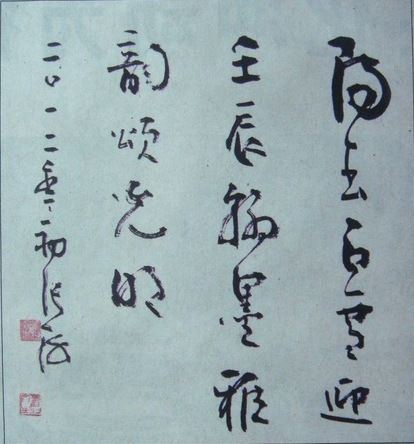 阳春白雪迎
壬辰翰墨雅
韵颂光明
二〇一二年初张海